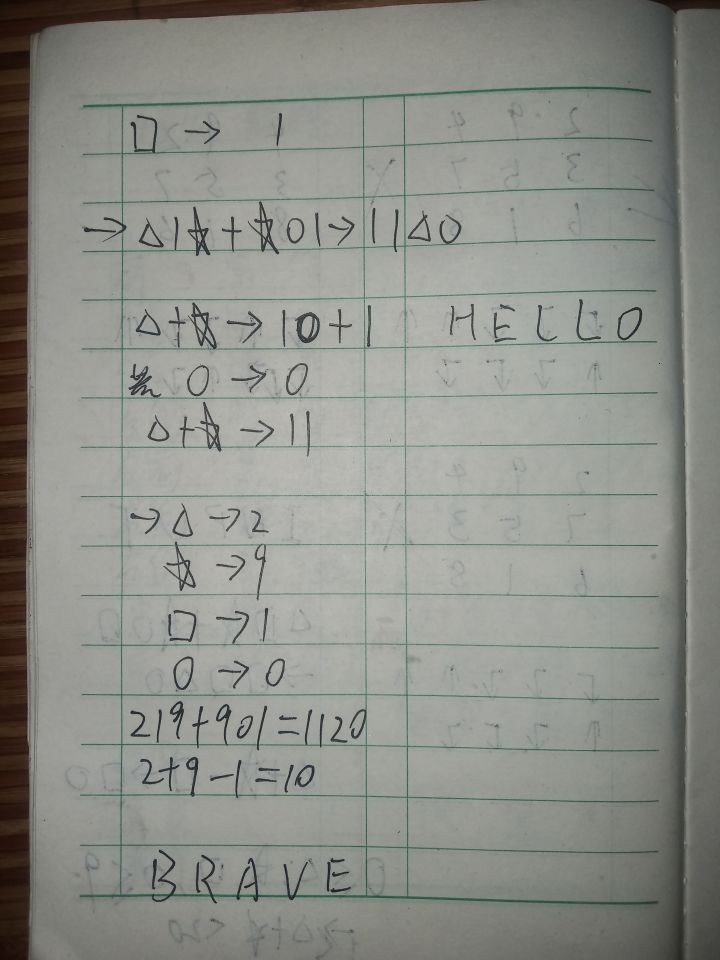 □ → 1
→ △1☆ + ☆01 → 11△0
△+☆ → 10+1 HELLO
0 → 0
△+☆ → 11
→ △ → 2
☆ → 9
□ → 1
0 → 0
219+901=1120
2+9-1=10
BRAVE